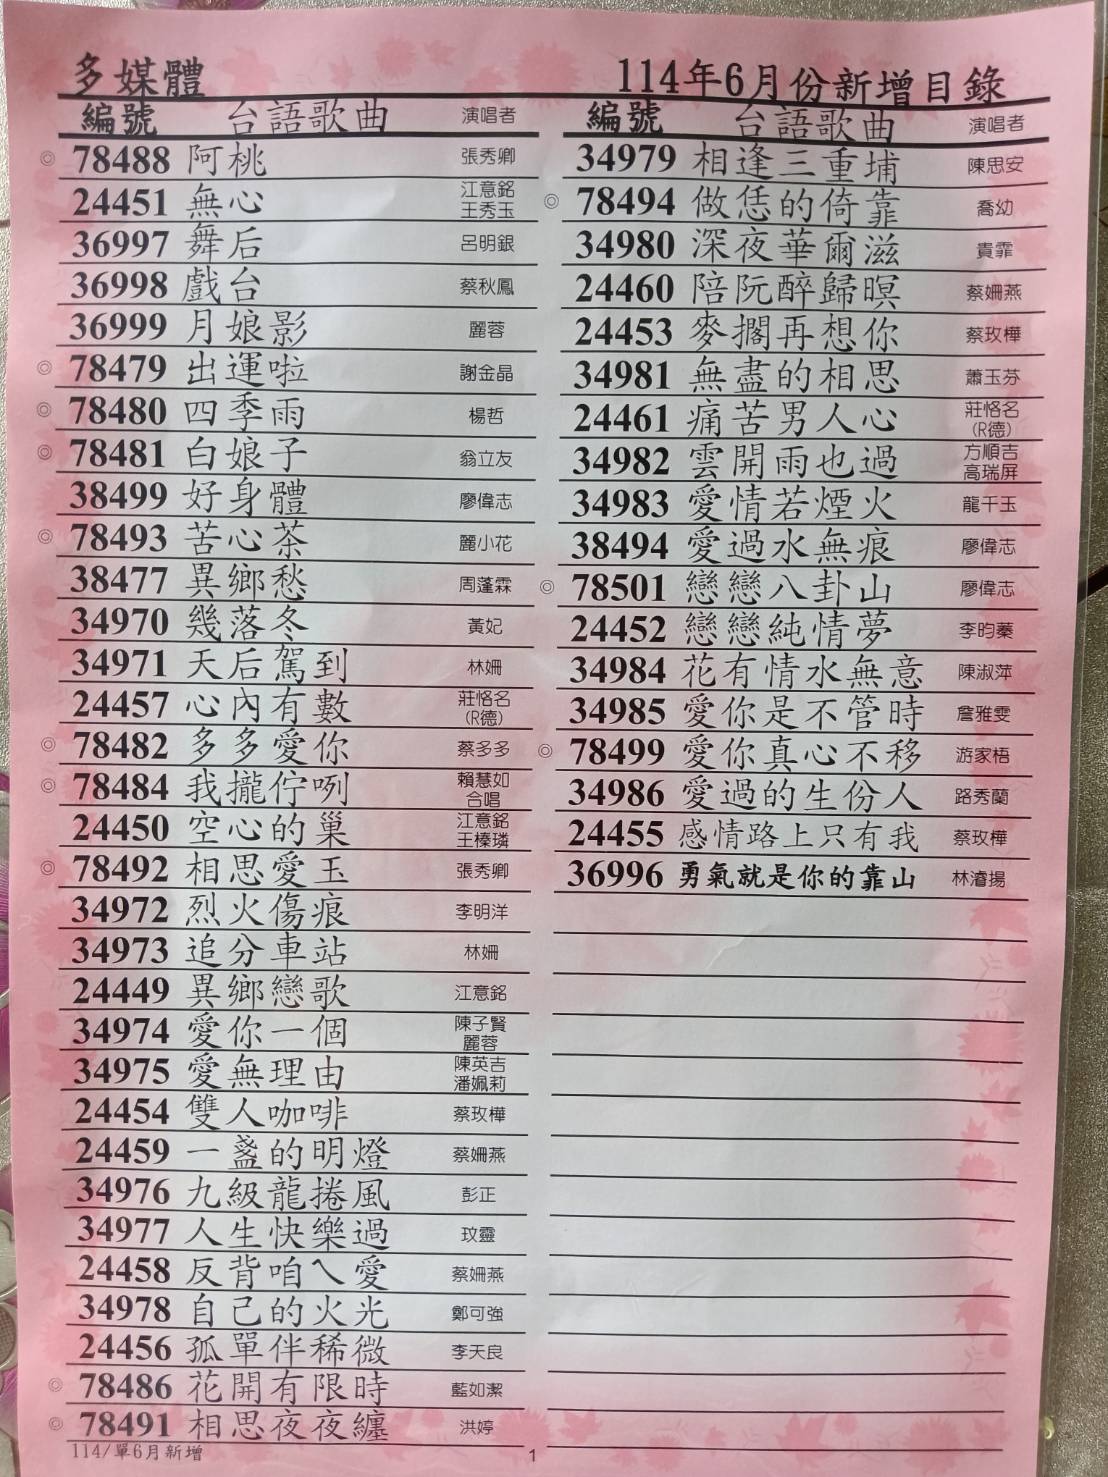 多媒體
114年6月份新增目錄
編號 台語歌曲 演唱者
◎ 78488 阿桃 張秀卿
24451 無心 江意銘 王秀玉
36997 舞后 呂明銀
36998 戲台 蔡秋鳳
36999 月娘影 麗蓉
◎ 78479 出運啦 謝金晶
◎ 78480 四季雨 楊哲
◎ 78481 白娘子 翁立友
38499 好身體 廖偉志
◎ 78493 苦心茶 麗小花
38477 異鄉愁 周蓬霖
34970 幾落冬 黃妃
34971 天后駕到 林姍
24457 心內有數 莊恪名 (R德)
◎ 78482 多多愛你 蔡多多
◎ 78484 我攏佇咧 賴慧如 合唱
24450 空心的巢 江意銘 王榛璘
◎ 78492 相思愛玉 張秀卿
34972 烈火傷痕 李明洋
34973 追分車站 林姍
24449 異鄉戀歌 江意銘
34974 愛你一個 陳子賢 麗蓉
34975 愛無理由 陳英吉 潘姵莉
24454 雙人咖啡 蔡玫樺
24459 一盞的明燈 蔡姍燕
34976 九級龍捲風 彭正
34977 人生快樂過 玟靈
24458 反背咱ㄟ愛 蔡姍燕
34978 自己的火光 鄭可強
24456 孤單伴稀微 李天良
◎ 78486 花開有限時 藍如潔
◎ 78491 相思夜夜纏 洪婷
編號 台語歌曲 演唱者
34979 相逢三重埔 陳思安
◎ 78494 做恁的倚靠 喬幼
34980 深夜華爾滋 貴霏
24460 陪阮醉歸暝 蔡姍燕
24453 麥擱再想你 蔡玫樺
34981 無盡的相思 蕭玉芬
24461 痛苦男人心 莊恪名 (R德)
34982 雲開雨也過 方順吉 高瑞屏
34983 愛情若煙火 龍千玉
38494 愛過水無痕 廖偉志
◎ 78501 戀戀八卦山 廖偉志
24452 戀戀純情夢 李昀蓁
34984 花有情水無意 陳淑萍
34985 愛你是不管時 詹雅雯
◎ 78499 愛你真心不移 游家梧
34986 愛過的生份人 路秀蘭
24455 感情路上只有我 蔡玫樺
36996 勇氣就是你的靠山 林濬揚
114/單6月新增
1